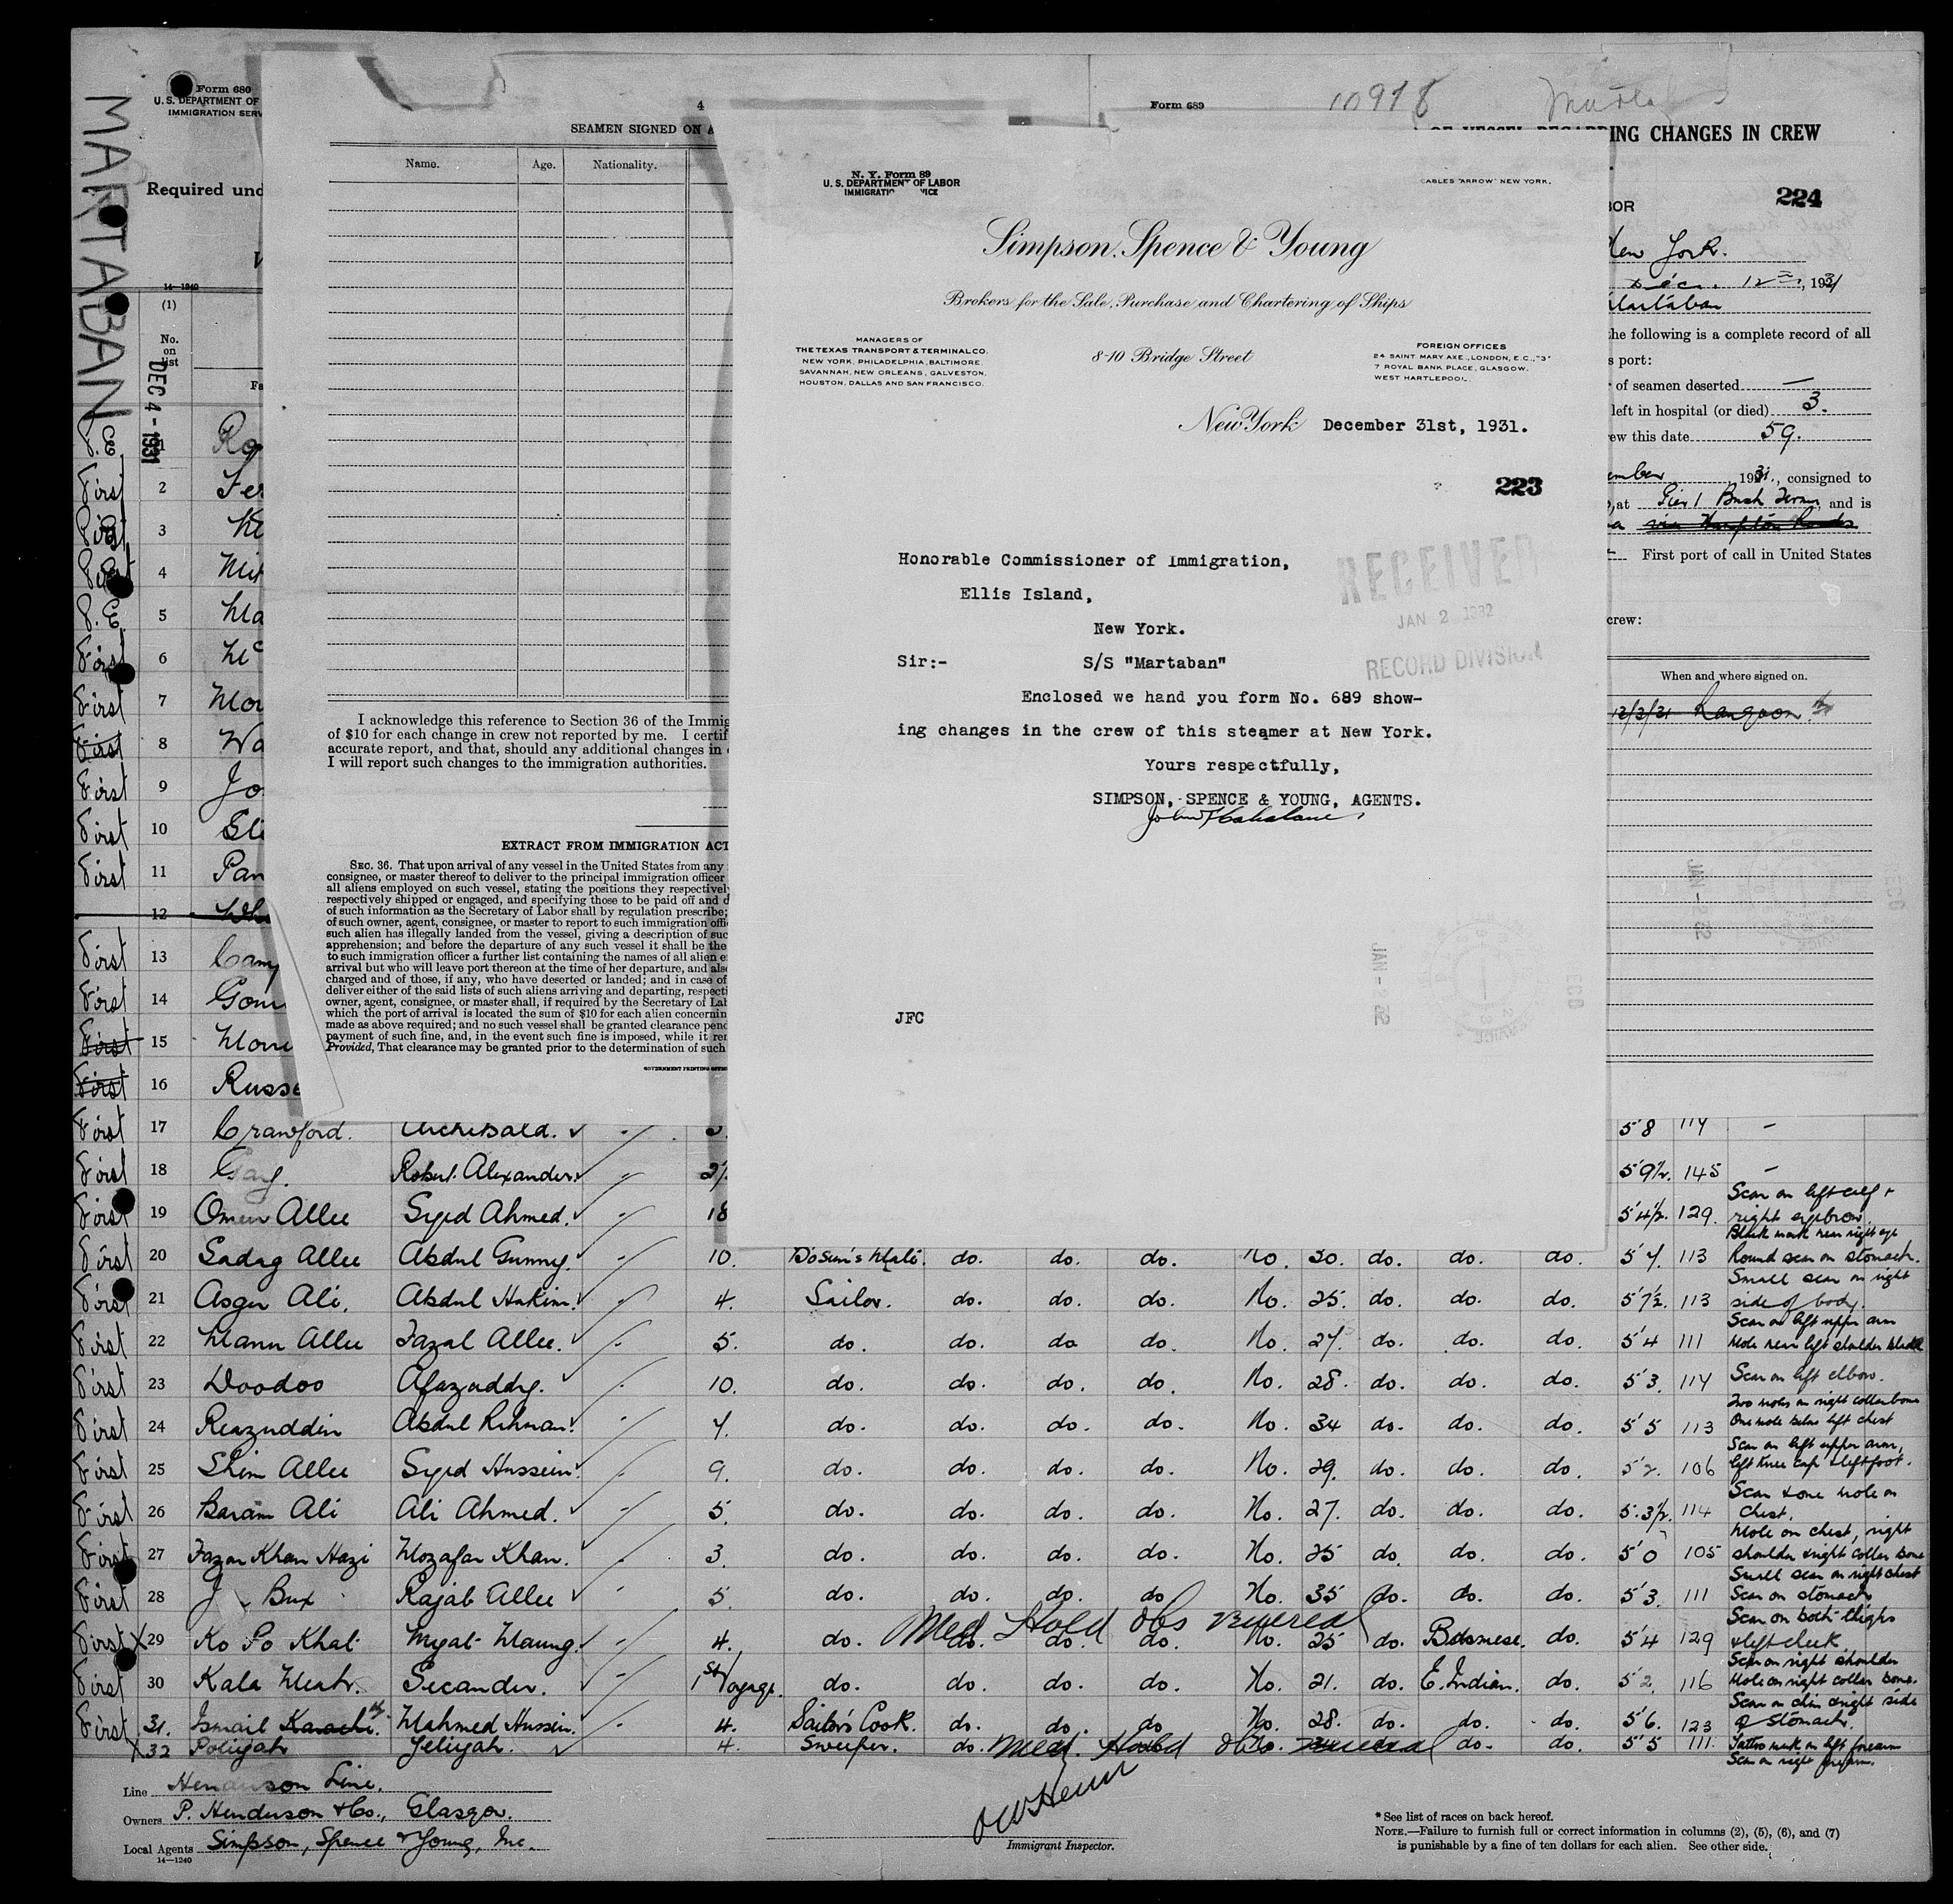 MARTABAN
DEC 4 - 1931
Form 680
U. S. DEPARTMENT OF
IMMIGRATION SERV
Required und
14—1240
(1)
No. on list
4
SEAMEN SIGNED ON A
Name. Age. Nationality.
I acknowledge this reference to Section 36 of the Immig
of $10 for each change in crew not reported by me. I certif
accurate report, and that, should any additional changes in
I will report such changes to the immigration authorities.
EXTRACT FROM IMMIGRATION ACT
SEC. 36. That upon arrival of any vessel in the United States from any
consignee, or master thereof to deliver to the principal immigration officer
all aliens employed on such vessel, stating the positions they respectively
respectively shipped or engaged, and specifying those to be paid off and d
of such information as the Secretary of Labor shall by regulation prescribe;
of such owner, agent, consignee, or master to report to such immigration offi
such alien has illegally landed from the vessel, giving a description of suc
apprehension; and before the departure of any such vessel it shall be the
to such immigration officer a further list containing the names of all alien e
arrival but who will leave port thereon at the time of her departure, and also
charged and of those, if any, who have deserted or landed; and in case of
deliver either of the said lists of such aliens arriving and departing, respecti
owner, agent, consignee, or master shall, if required by the Secretary of Lab
which the port of arrival is located the sum of $10 for each alien concernin
made as above required; and no such vessel shall be granted clearance pend
payment of such fine, and, in the event such fine is imposed, while it rem
Provided, That clearance may be granted prior to the determination of such
Form 689
10978
N. Y. Form 89
U. S. DEPARTMENT OF LABOR
CABLES "ARROW" NEW YORK.
Simpson, Spence & Young
Brokers for the Sale, Purchase and Chartering of Ships
MANAGERS OF
THE TEXAS TRANSPORT & TERMINAL CO.
NEW YORK, PHILADELPHIA, BALTIMORE
SAVANNAH, NEW ORLEANS, GALVESTON,
HOUSTON, DALLAS AND SAN FRANCISCO.
8-10 Bridge Street
FOREIGN OFFICES
24 SAINT MARY AXE., LONDON, E.C., "3"
7 ROYAL BANK PLACE, GLASGOW.
WEST HARTLEPOOL.
New York December 31st, 1931.
223
Honorable Commissioner of Immigration,
Ellis Island,
New York.
RECEIVED
JAN 2 1932
RECORD DIVISION
Sir:- S/S "Martaban"
Enclosed we hand you form No. 689 show-
ing changes in the crew of this steamer at New York.
Yours respectfully,
SIMPSON, SPENCE & YOUNG, AGENTS.
JFC
ING CHANGES IN CREW
224
BOR
New York.
Dec. 12, 1931
Martaban
the following is a complete record of all
s port:
of seamen deserted —
left in hospital (or died) 3.
ew this date 59.
ember 1931, consigned to
at Pier 1 Bush Term and is
via Hampton Roads
First port of call in United States
crew:
When and where signed on.
Rangoon
JAN - 2 32
First 2
First 3
4
P.E. 5
First 6
First 7
First 8
First 9
First 10
First 11 Pan
12
First 13
First 14
First 15
First 16 Russe
First 17 Crawford. Archibald. 5'8 114 –
First 18 Robert Alexander 27 5'9½ 145 –
First 19 Omer Allee Syed Ahmed. 18 5'4½. 129. Scar on left calf + right eyebrow
First 20 Sadag Allee Abdul Gunny. 10. Bosun's Mate. do. do. do. No. 30. do. do. do. 5'7. 113 Black mark near right eye Round scar on stomach.
First 21 Asger Ali. Abdul Hakim. 4. Sailor. do. do. do. No. 25. do. do. do. 5'7½. 113 Small scar on right side of body.
First 22 Mann Allee Fazal Allee. 5. do. do. do do. No. 27. do. do. do. 5'4 111 Scar on left upper arm Mole near left shoulder blade
First 23 Doodoo Afazuddy. 10. do. do. do. do. No. 28. do. do. do. 5'3. 114 Scar on left elbow.
First 24 Reazuddin Abdul Rehman. 7. do. do. do. do. No. 34 do. do. do. 5'5 113 Two moles on right collarbone One mole below left chest
First 25 Shim Allee Syed Hussein. 9. do. do. do. do. No. 29. do. do. do. 5'2. 106 Scar on left upper arm, left knee cap + left foot.
First 26 Baram Ali Ali Ahmed. 5. do. do. do. do. No. 27. do. do. do. 5'3½. 114 Scar & one mole on chest.
First 27 Fazar Khan Hazi Mozafar Khan. 3. do. do. do. do. No. 25 do. do. do. 5'0 105 Mole on chest, right shoulder & right collar bone
First 28 Bux Rajab Allee 5. do. do. do. do No. 35 do. do. do. 5'3. 111 Small scar on right chest Scar on stomach
Med Hold Obs
First X29 Ko Po Khat Myat Maung. 4. do. do. do. do. No. 25 do. Burmese. do. 5'4 129 Scar on both thighs & left cheek.
First 30 Kala Meah. Secander. 1st Voyage. do. do. do. do. No. 21. do. E. Indian. do. 5'2. 116 Scar on right shoulder Mole on right collar bone.
First 31. Ismail Karachi. Mahmed Hussin. 4. Sailor's Cook. do. do. do No. 28. do. do. do. 5'6. 123 Scar on chin & right side of stomach.
X32 Poliyah Yeliyah. 4. Sweeper. do. Med. Hold Obs do. do. 5'5 111. Tattoo mark on left forearm Scar on right forearm.
Line Henderson Line.
Owners P. Henderson & Co., Glasgow.
Local Agents Simpson, Spence & Young, Inc.
14—1240
Immigrant Inspector.
* See list of races on back hereof.
NOTE.—Failure to furnish full or correct information in columns (2), (5), (6), and (7)
is punishable by a fine of ten dollars for each alien. See other side.